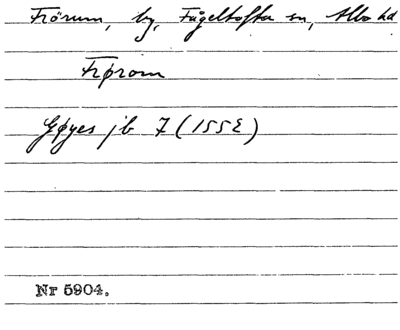 Frörum, by, Fågeltofta sn, Albo hd
Frørom
Gøyes jb 7 (1552)
Nr 5904.